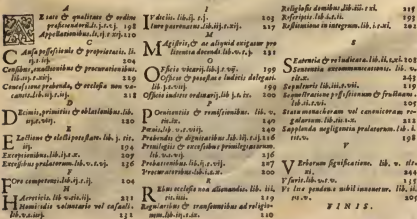 A
Etate & qualitate & ordine
præficiendorũ. lib.j.t.vj. 198
Appellationibus. li.ij.t.xij. 210
C
Causa possessionis & proprietatis. li.
ij.t.iij. 204
Censibus, exactionibus & procurationibus.
lib.iij.t.xij. 229
Concessione præbende, & ecclesia non va-
cante. lib.iij.t.ij. 218
D
Decimis, primitiis & oblationibus. lib.
E
Electione & electi potestate. lib. j. tit.
iij. 194
Exceptionibus. lib.ij.t.x. 207
Excessibus prælatorum. lib.v.t.vj. 236
F
Foro competenti. lib.ij.t.ij. 204
H
Hæreticis. lib.v.tit.ij. 231
Homicidio voluntario vel casuali.
lib.v.t.iiij. 232
I
Iudiciis. lib.ij. t.j. 203
Iure patronatus. lib.iij.t.xij. 227
M
Magistris, & ne aliquid exigatur pro
licentia docendi. lib.v. t.j. 231
O
Officio vicarij. lib.j.t.vij. 199
Officio & potestate iudicis delegati.
lib.j.t.viij. 199
Officio iudicis ordinarij. lib.j.t. ix. 200
P
Pœnitentiis & remissionibus. lib. v.
Pœnis. lib.v.t.viij.
Præbendis & dignitatibus. lib. iij.t.j. 216
Privilegiis & excessibus privilegiatorum.
lib.v.t.vij. 236
Probationibus. lib.ij.t.vij. 207
Procuratoribus. lib.j.t.x. 200
R
Rebus ecclesiæ non alienandis. lib. iij.
Regularibus & transeuntibus ad religio-
nem. lib.iij.t.x.
Religiosis domibus. lib.iij. t.xi. 227
Rescriptis. lib.j. t.ij. 193
Restitutione in integrum. lib. j.t.xj. 202
S
Sententia & re iudicata. lib. ij. t.xj. 208
Sententia excommunicationis. lib. v.
Sepulturis. lib.iij.t.vij.
Sequestratione possessionum & fructuum.
lib.ij.t.vj.
Statu monachorum vel canonicorum re-
gularium. lib.iij.t.x.
Supplenda negligentia prælatorum. lib. j.
tit.v.
V
Verborum significatione. lib. v. tit.
xij. 244
Vsuris. lib.v.t.v. 235
Vt lite pendente nihil innovetur. lib. ij.
FINIS.